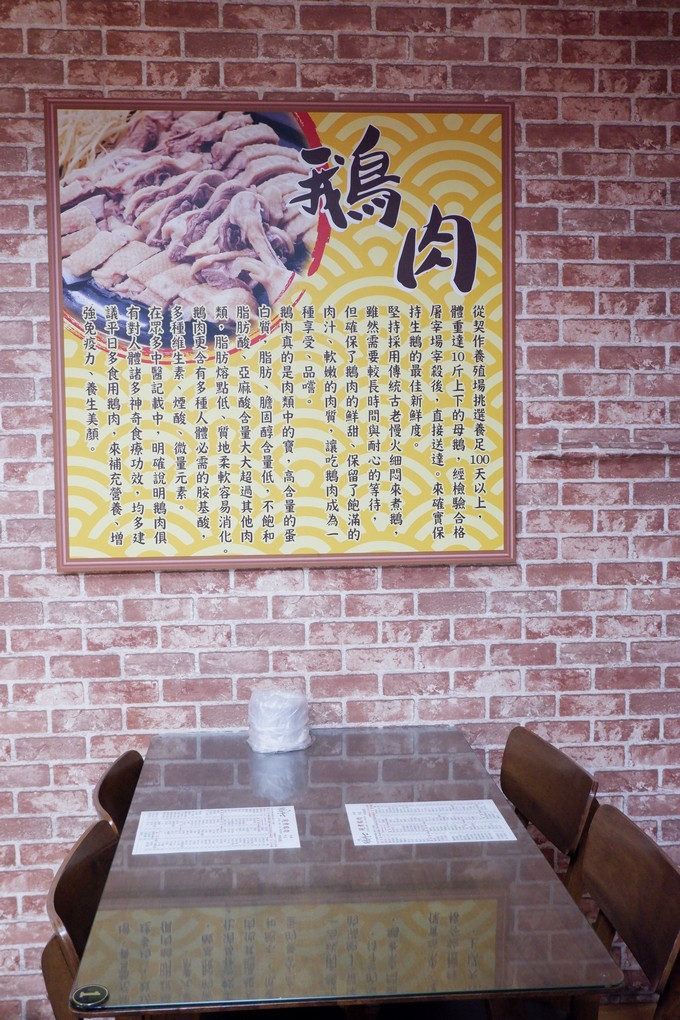 鵝肉
從契作養殖場挑選養足100天以上，
體重達10斤上下的母鵝，經檢驗合格
屠宰場宰殺後，直接送達。來確實保
持生鵝的最佳新鮮度。
堅持採用傳統古老慢火細悶來煮鵝，
雖然需要較長時間與耐心的等待，
但確保了鵝肉的鮮甜、保留了飽滿的
肉汁、軟嫩的肉質，讓吃鵝肉成為一
種享受、品嚐。
鵝肉真的是肉類中的寶，高含量的蛋
白質、脂肪、膽固醇含量低，不飽和
脂肪酸、亞麻酸含量大大超過其他肉
類，脂肪熔點低、質地柔軟容易消化。
鵝肉更含有多種人體必需的胺基酸，
多種維生素、煙酸、微量元素。
在眾多中醫記載中，明確說明鵝肉俱
有對人體諸多神奇食療功效，均多建
議平日多食用鵝肉，來補充營養、增
強免疫力、養生美顏。
1